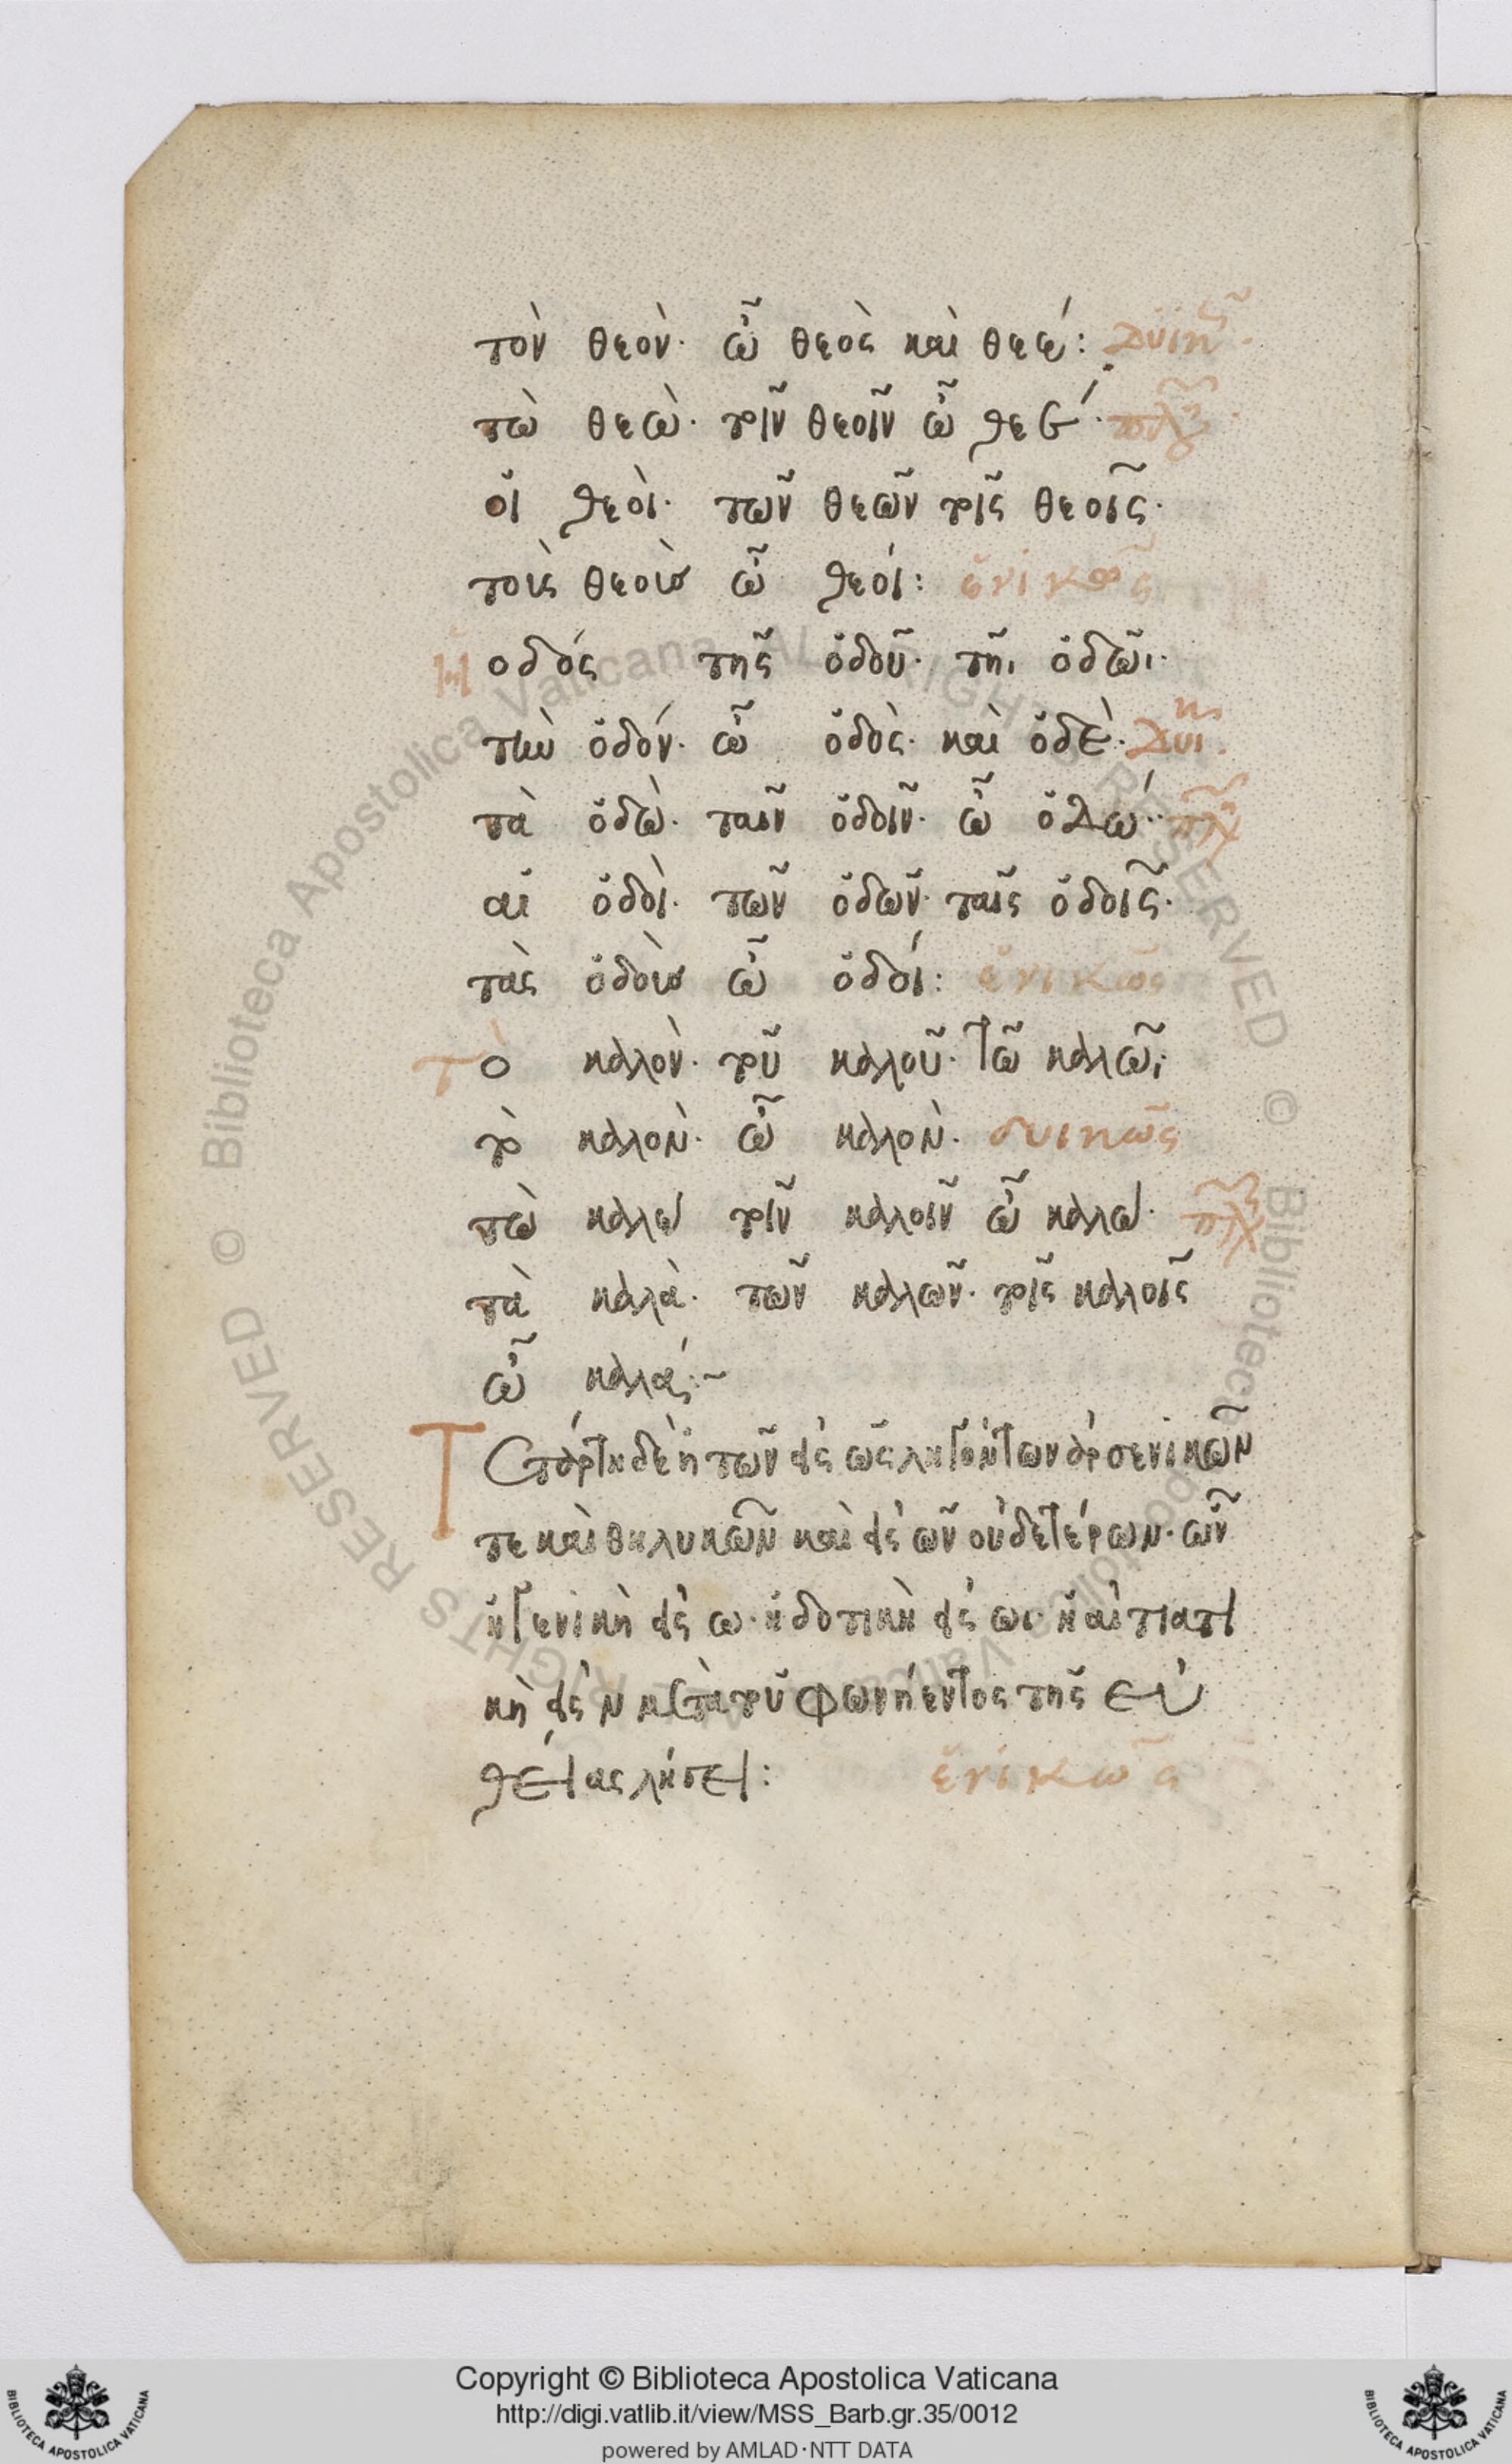 τὸν θεὸν· ὦ θεὸς καὶ θεέ: δυϊκῶς·
τὼ θεὼ· τοῖν θεοῖν ὦ θεώ· πληθ·
οἱ θεοὶ· τῶν θεῶν τοῖς θεοῖς·
τοὺς θεοὺς ὦ θεοί: ἑνικῶς
ἡ ὁδός τῆς ὁδοῦ· τῆι ὁδῶι·
τὴν ὁδόν· ὦ ὁδὸς· καὶ ὁδὲ· δυϊκῶς·
τὰ ὁδὼ· ταῖν ὁδοῖν· ὦ ὁδώ· πληθ
αἱ ὁδοὶ· τῶν ὁδῶν· ταῖς ὁδοῖς·
τὰς ὁδοὺς ὦ ὁδοί: ἑνικῶς
τὸ καλὸν· τοῦ καλοῦ· τῶ καλῶι
τὸ καλὸν· ὦ καλὸν· δυικῶς
τὼ καλώ τοῖν καλοῖν ὦ καλώ· πληθ
τὰ καλὰ· τῶν καλῶν· τοῖς καλοῖς
ὦ καλά:~
Τετάρτη δὲ ἡ τῶν εἰς ως ληγόντων ἀρσενικῶν
τε καὶ θηλυκῶν καὶ εἰς ων οὐδετέρων· ὧν
ἡ γενικὴ εἰς ω· ἡ δοτικὴ εἰς ωι· ἡ αἰτιατι
κὴ εἰς ν μετὰ τοῦ φωνήεντος τῆς εὐ
θείας λήγει: ἑνικῶς
Copyright © Biblioteca Apostolica Vaticana
http://digi.vatlib.it/view/MSS_Barb.gr.35/0012
powered by AMLAD·NTT DATA